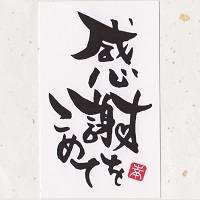 感謝を
こめて